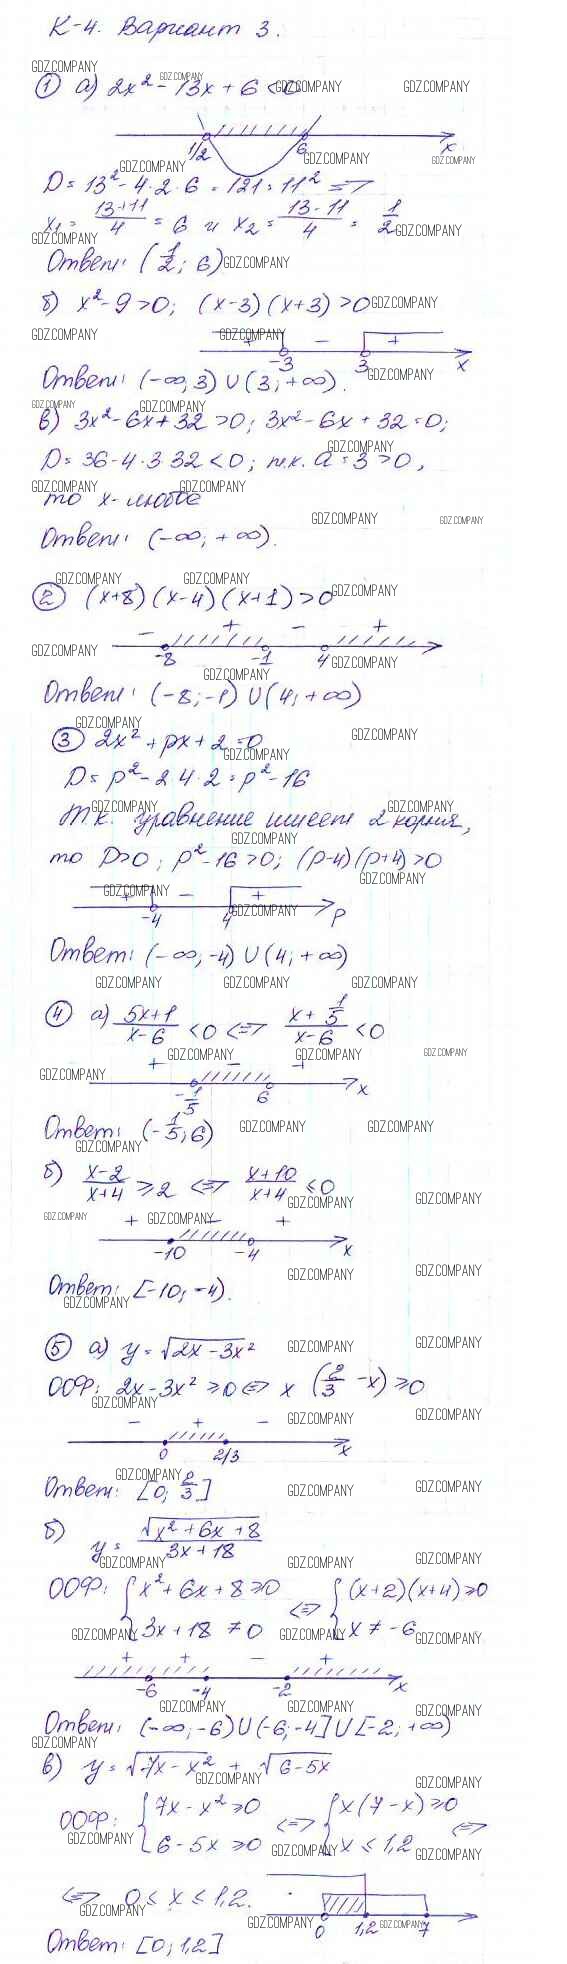 К-4. Вариант 3.
GDZ.COMPANY
① а) 2x² - 13x + 6 < 0
1/2 6 x
D = 13² - 4·2·6 = 121 = 11² =>
x₁ = (13+11)/4 = 6 и x₂ = (13-11)/4 = 1/2
Ответ: (1/2; 6)
б) x² - 9 > 0; (x-3)(x+3) > 0
+ - +
-3 3 x
Ответ: (-∞; 3) ∪ (3; +∞).
в) 3x² - 6x + 32 > 0; 3x² - 6x + 32 = 0;
D = 36 - 4·3·32 < 0; т.к. a = 3 > 0,
то x - любое
Ответ: (-∞; +∞).
② (x+8)(x-4)(x+1) > 0
- + - +
-8 -1 4
Ответ: (-8; -1) ∪ (4; +∞)
③ 2x² + px + 2 = 0
D = p² - 2·4·2 = p² - 16
Т.к. уравнение имеет 2 корня,
то D > 0; p² - 16 > 0; (p-4)(p+4) > 0
+ - +
-4 4 p
Ответ: (-∞; -4) ∪ (4; +∞)
④ а) (5x+1)/(x-6) < 0 <=> (x + 1/5)/(x-6) < 0
+ - +
-1/5 6 x
Ответ: (-1/5; 6)
б) (x-2)/(x+4) ≥ 2 <=> (x+10)/(x+4) ≤ 0
+ - +
-10 -4 x
Ответ: [-10; -4).
⑤ а) y = √(2x - 3x²)
ООФ: 2x - 3x² ≥ 0 <=> x (2/3 - x) ≥ 0
- + -
0 2/3 x
Ответ: [0; 2/3]
б) y = √(x² + 6x + 8)/(3x + 18)
ООФ: { x² + 6x + 8 ≥ 0 <=> { (x+2)(x+4) ≥ 0
3x + 18 ≠ 0 x ≠ -6
+ + - +
-6 -4 -2 x
Ответ: (-∞; -6) ∪ (-6; -4] ∪ [-2; +∞)
в) y = √(7x - x²) + √(6 - 5x)
ООФ: { 7x - x² ≥ 0 <=> { x(7 - x) ≥ 0
6 - 5x ≥ 0 x ≤ 1,2 <=>
<=> 0 ≤ x ≤ 1,2.
0 1,2 7
Ответ: [0; 1,2]